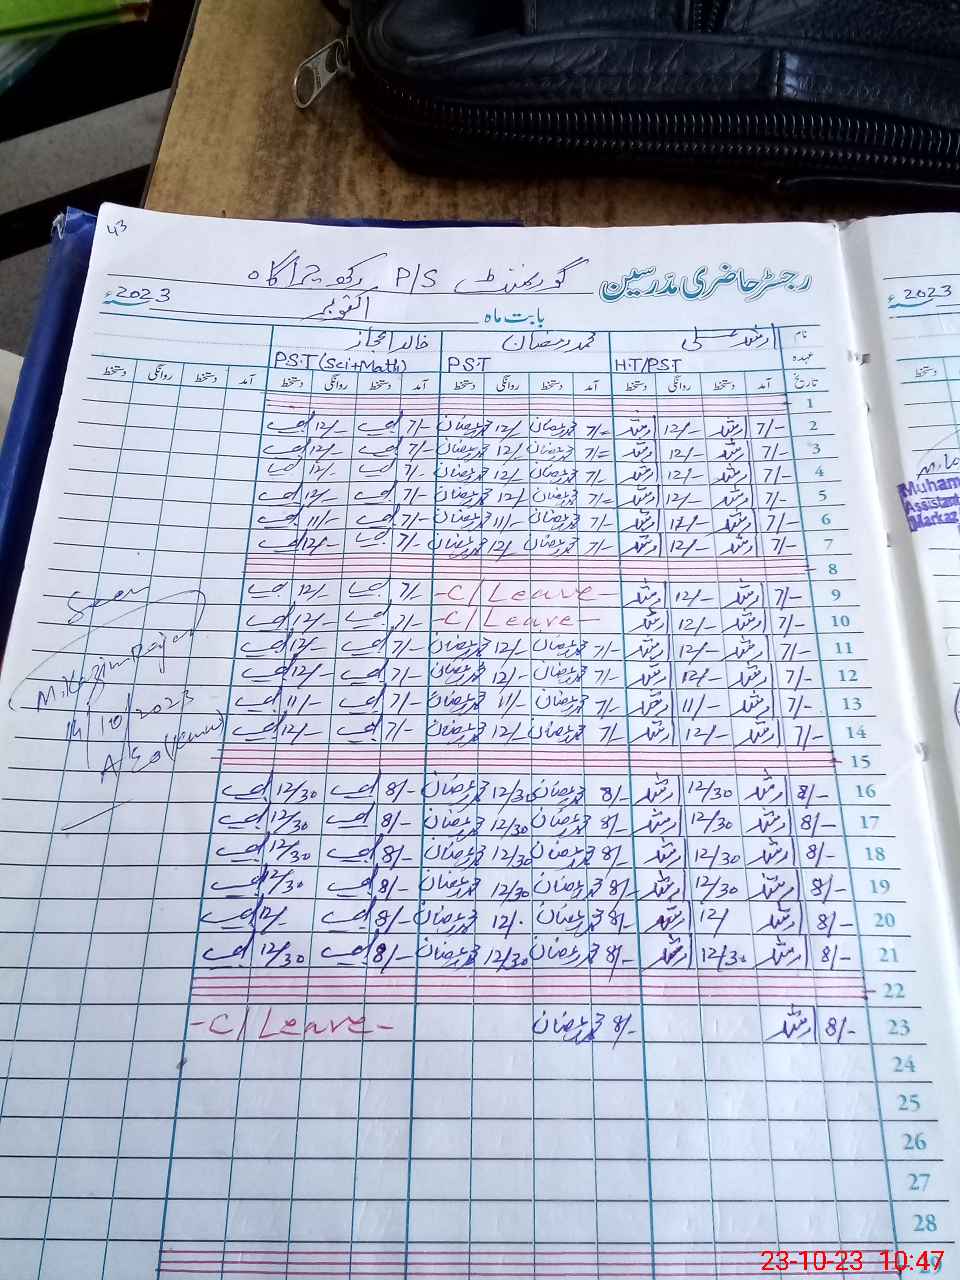 43
رجسٹر حاضری مدرسین گورنمنٹ P/S رکھ چراگاہ
بابت ماہ اکتوبر 2023ء
نام ارشد علی محمد رمضان خالد اعجاز
عہدہ H.T/P.S.T P.S.T P.S.T (Sci+Math)
تاریخ آمد دستخط روانگی دستخط آمد دستخط روانگی دستخط آمد دستخط روانگی دستخط آمد دستخط روانگی دستخط
1
2 7/- ارشد 12/- ارشد 7/= محمد رمضان 12/- محمد رمضان 7/- 12/-
3 7/- ارشد 12/- ارشد 7/= محمد رمضان 12/- محمد رمضان 7/- 12/-
4 7/- ارشد 12/- ارشد 7/- محمد رمضان 12/- محمد رمضان 7/- 12/-
5 7/- ارشد 12/- ارشد 7/= محمد رمضان 12/- محمد رمضان 7/- 12/-
6 7/- ارشد ارشد 7/- محمد رمضان 11/- محمد رمضان 7/- 11/-
7 7/- ارشد 12/- ارشد 7/- محمد رمضان 12/- محمد رمضان 7/- 12/-
8
9 7/- ارشد 12/- ارشد -C/Leave- 7/- 12/-
10 7/- ارشد 12/- ارشد -C/Leave- 7/- 12/-
11 7/- ارشد 12/- ارشد 7/- محمد رمضان 12/- محمد رمضان 7/- 12/-
12 7/- ارشد 12/- ارشد 7/- محمد رمضان 12/- محمد رمضان 7/- 12/-
13 7/- ارشد 11/- ارشد 7/- محمد رمضان 11/- محمد رمضان 7/- 11/-
14 7/- ارشد 12/- ارشد 7/- محمد رمضان 12/- محمد رمضان 7/- 12/-
15
16 8/- ارشد 12/30 ارشد 8/- محمد رمضان 12/30 محمد رمضان 8/- 12/30
17 8/- ارشد 12/30 ارشد 8/- محمد رمضان 12/30 محمد رمضان 8/- 12/30
18 8/- ارشد 12/30 ارشد 8/- محمد رمضان 12/30 محمد رمضان 8/- 12/30
19 8/- ارشد 12/30 ارشد 8/- محمد رمضان 12/30 محمد رمضان 8/- 12/30
20 8/- ارشد 12/ ارشد 8/- محمد رمضان 12/. محمد رمضان 8/- 12/-
21 8/- ارشد 12/30 ارشد 8/- محمد رمضان 12/30 محمد رمضان 8/- 12/30
22
23 8/- ارشد 8/- محمد رمضان -C/Leave-
24
25
26
27
28
29
Seen
14/10/2023
AEO
2023ء
دستخط
Muham
Assistant
Markaz
23-10-23 10:47